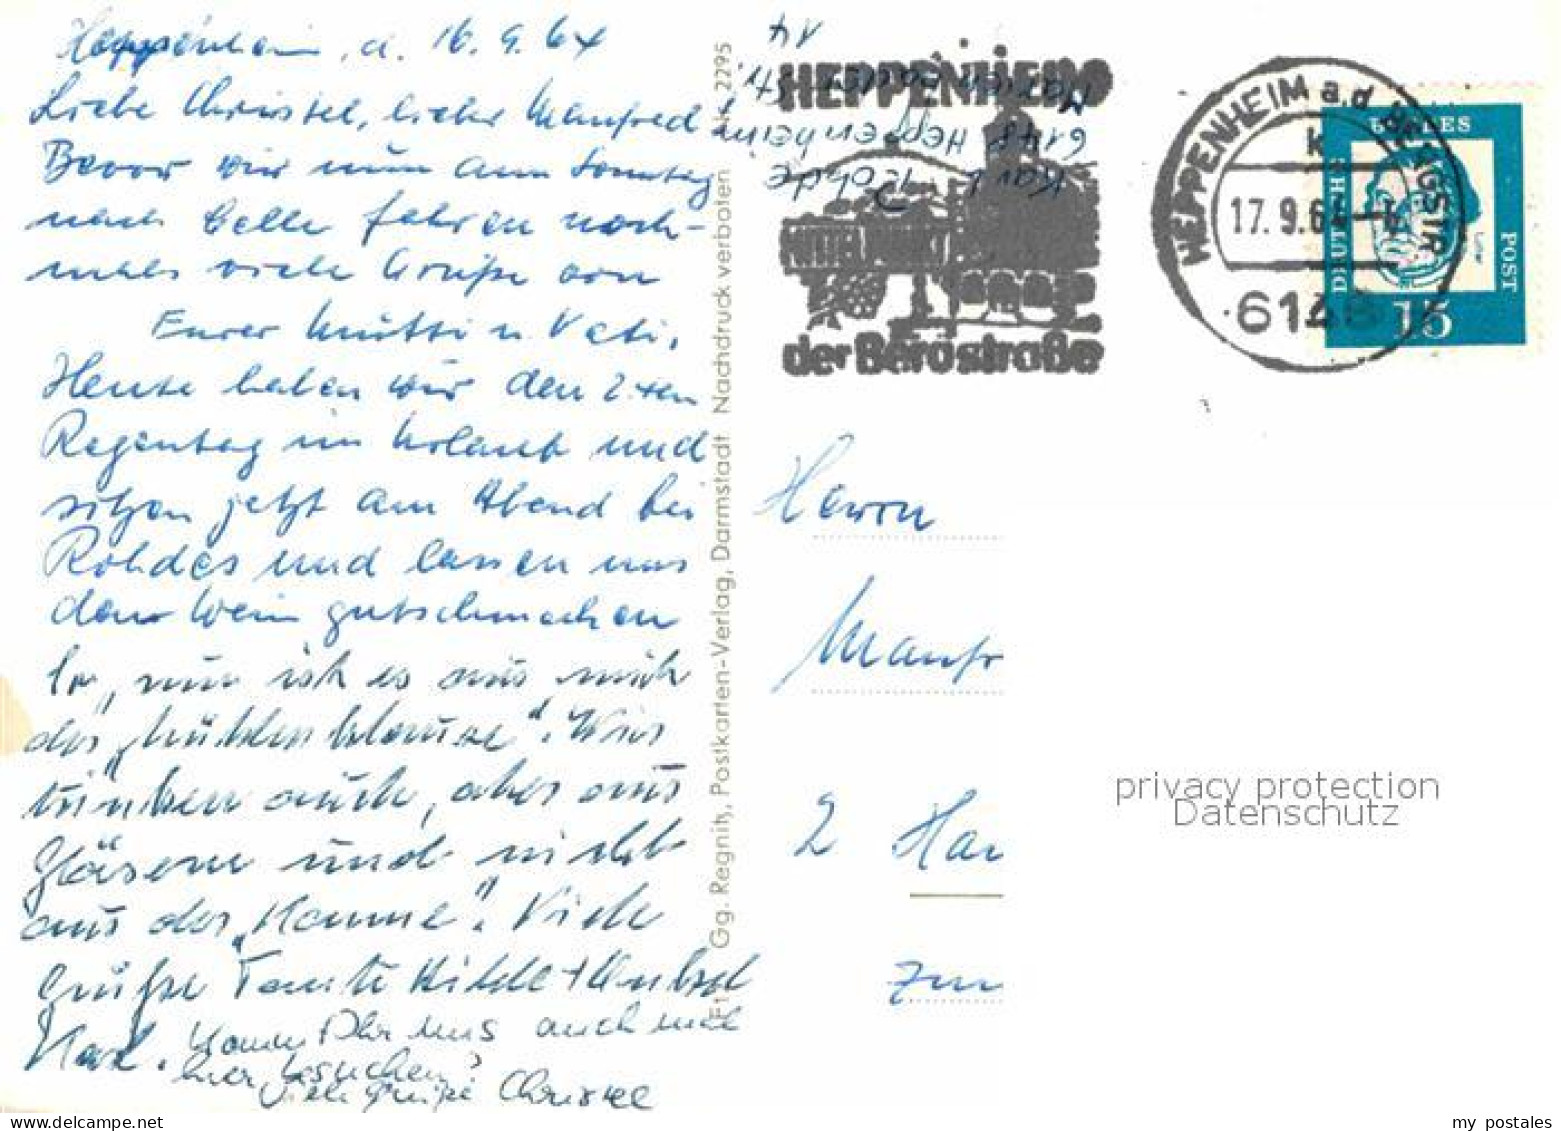 Heppenheim, d. 16.9.64
Liebe Christel, lieber Manfred
Bevor wir nun am Sonntag
nach Celle fahren noch-
mals viele Grüße von
Eurer Mutti u. Vati.
Heute haben wir den 2ten
Regentag im Urlaub und
sitzen jetzt am Abend bei
Rohdes und lassen uns
den Wein gutschmecken
So, nun ist es aus mit
der „ ". Wir
trinken auch, aber aus
Gläsern und nicht
aus der „Kanne". Viele
Grüße Tante Hilde + Onkel
Karl. Ihr uns auch mal
hier besuchen?
Viele Grüße Christel
F1 Gg. Regnitz, Postkarten-Verlag, Darmstadt Nachdruck verboten 2295
Karl Rohde
6148 Heppenheim
14
HEPPENHEIM
MITTELPUNKT
der Bergstraße
HEPPENHEIM a.d. BERGSTR
k
17.9.64
6148
DEUTSCHE
BUNDES
POST
Luther
15
Herrn
Manfr
2 Ham
privacy protection
Datenschutz
my postales